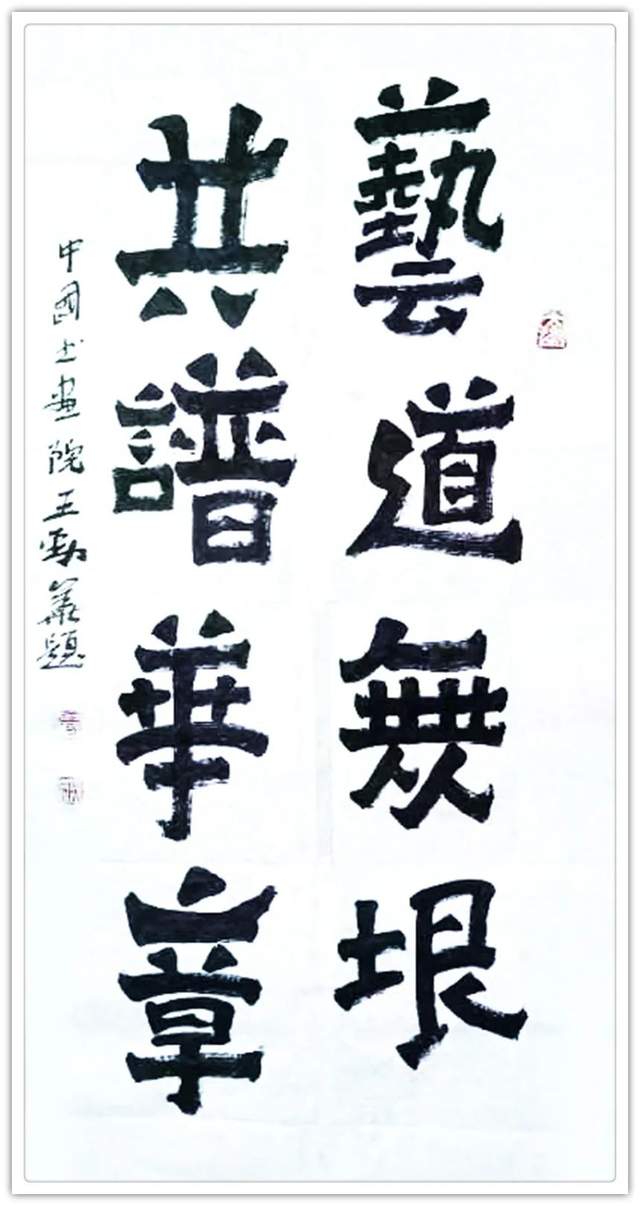 藝道無垠
共譜華章
中國書畫院王勁題